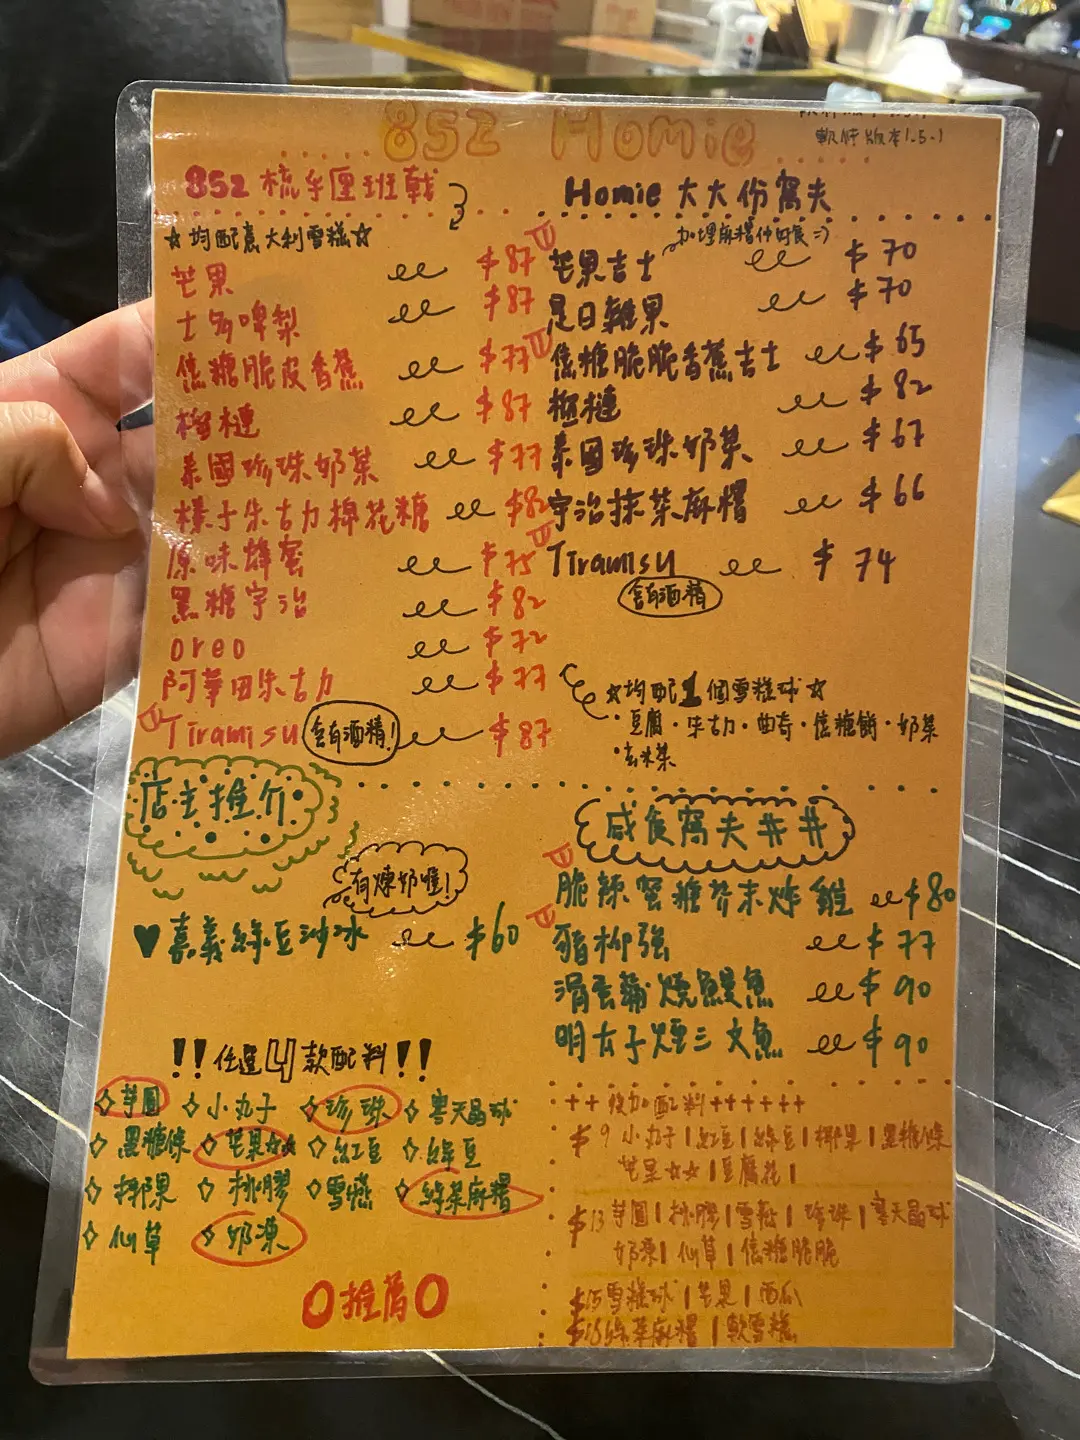 852 Homie
軟硬版本1.5.1
852 梳乎厘班戟
☆均配意大利雪糕☆
芒果 $87
士多啤梨 $87
焦糖脆皮香蕉 $77
榴槤 $87
泰國珍珠奶茶 $77
樣子朱古力棉花糖 $82
原味蜂蜜 $75
黑糖宇治 $82
oreo $72
阿華田朱古力 $77
Tiramisu 含有酒精! $87
Homie 大大份窩夫
加埋麻糬仲好食 =)
芒果吉士 $70
是日雜果 $70
焦糖脆脆香蕉吉士 $65
榴槤 $82
泰國珍珠奶茶 $67
宇治抹茶麻糬 $66
Tiramisu $74
含有酒精
☆均配1個雪糕球☆
·豆腐·朱古力·曲奇·焦糖餅·奶茶
·玄米茶
店主推介
有煉奶喔!
♥嘉義綠豆沙冰 $60
咸食窩夫##
脆辣蜜糖芥末炸雞 $80
豬柳強 $77
滑蛋蒲燒鰻魚 $90
明太子煙三文魚 $90
!!任選4款配料!!
◇芋圓 ◇小丸子 ◇珍珠 ◇寒天晶球
◇黑糖條 ◇芒果☆☆ ◇紅豆 ◇綠豆
◇椰果 ◇桃膠 ◇雪燕 ◇綠茶麻糬
◇仙草 ◇奶凍
O推薦O
++後加配料++++++
$9 小丸子|紅豆|綠豆|椰果|黑糖條
芒果☆☆|豆腐花|
$13 芋圓|桃膠|雪燕|珍珠|寒天晶球
奶凍|仙草|焦糖脆脆
$15雪糕球|芒果|西瓜
$16綠茶麻糬|軟雪糕